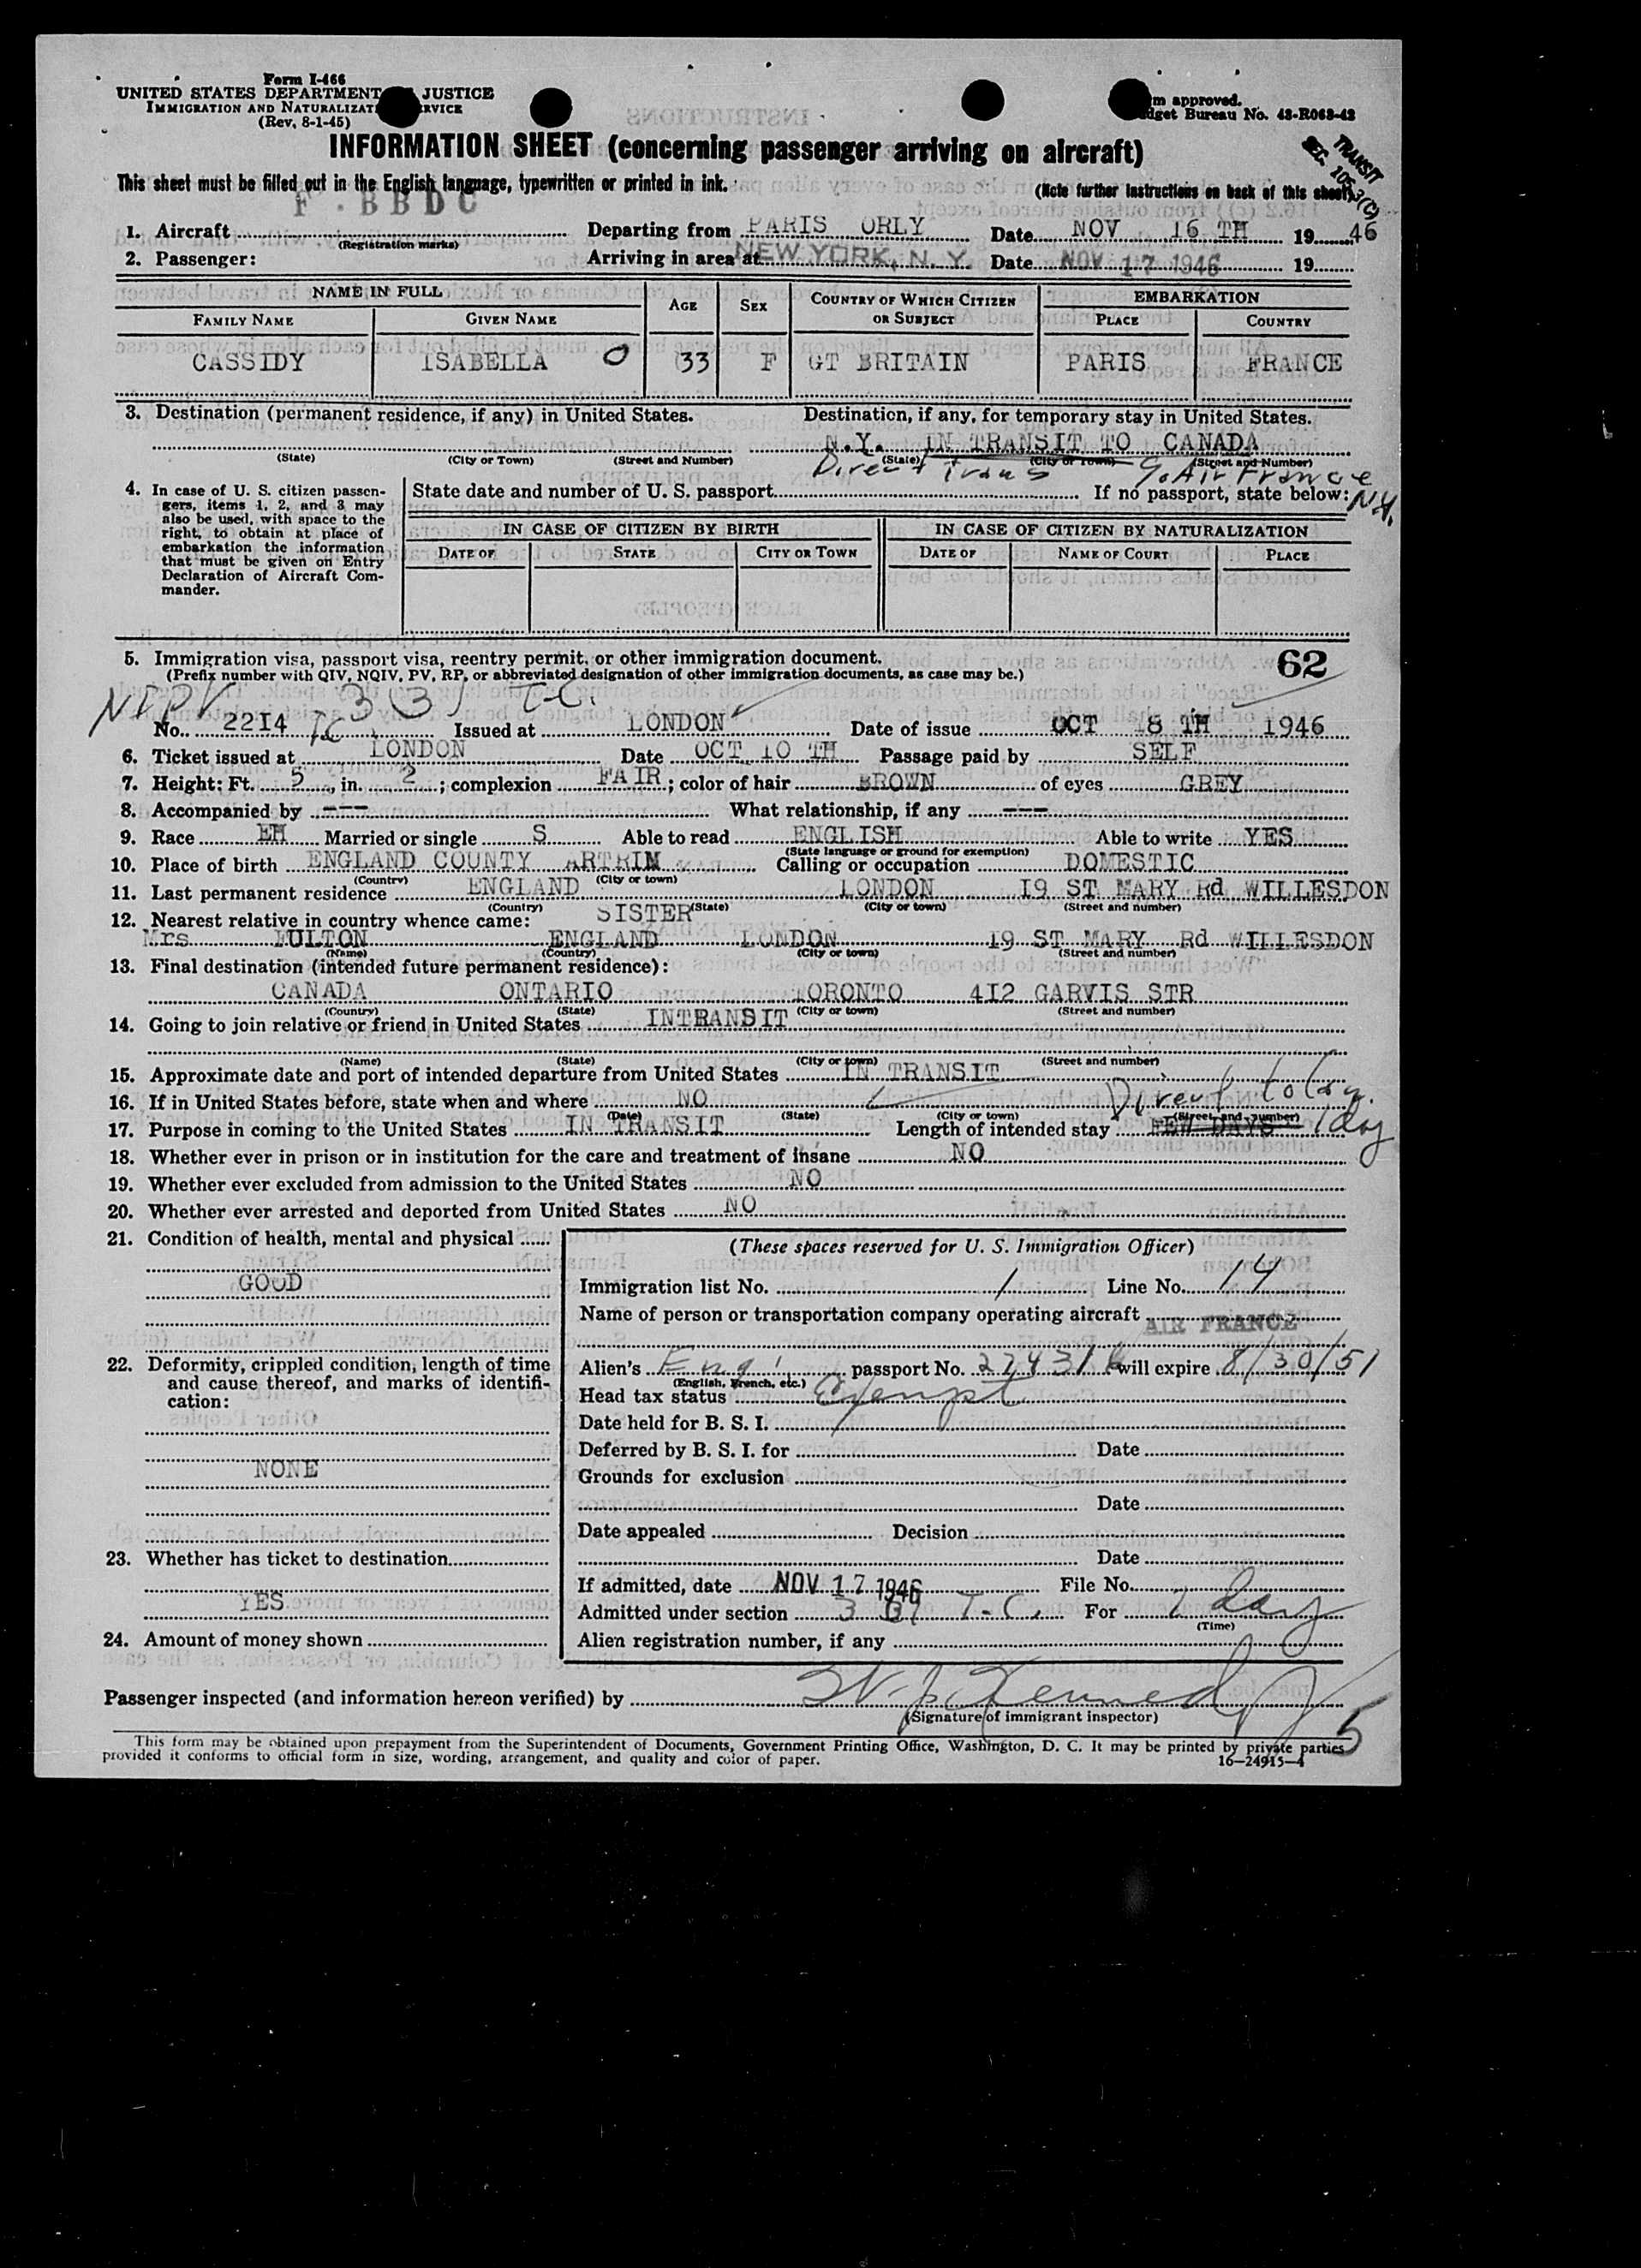 Form I-466
UNITED STATES DEPARTMENT JUSTICE
IMMIGRATION AND NATURALIZATI RVICE
(Rev. 8-1-45)
m approved.
dget Bureau No. 43-R063-42
INFORMATION SHEET (concerning passenger arriving on aircraft)
TRANSIT
SEC. 105.3(C)
This sheet must be filled out in the English language, typewritten or printed in ink.
(Note further instructions on back of this sheet)
F.BBDC
1. Aircraft Departing from PARIS ORLY Date NOV 16 TH 1946
(Registration marks)
2. Passenger: Arriving in area at NEW YORK, N. Y. Date NOV 17 1946 19
NAME IN FULL AGE SEX COUNTRY OF WHICH CITIZEN OR SUBJECT EMBARKATION
FAMILY NAME GIVEN NAME PLACE COUNTRY
CASSIDY ISABELLA O 33 F GT BRITAIN PARIS FRANCE
3. Destination (permanent residence, if any) in United States. Destination, if any, for temporary stay in United States.
N.Y. IN TRANSIT TO CANADA
(State) (City or Town) (Street and Number) (State) (City or Town) (Street and Number)
Direct Trans % Air France
N.Y.
4. In case of U. S. citizen passengers, items 1, 2, and 3 may also be used, with space to the right, to obtain at place of embarkation the information that must be given on Entry Declaration of Aircraft Commander.
State date and number of U. S. passport If no passport, state below:
IN CASE OF CITIZEN BY BIRTH IN CASE OF CITIZEN BY NATURALIZATION
DATE OF STATE CITY OR TOWN DATE OF NAME OF COURT PLACE
5. Immigration visa, passport visa, reentry permit, or other immigration document. 62
(Prefix number with QIV, NQIV, PV, RP, or abbreviated designation of other immigration documents, as case may be.)
No. 22I4 Issued at LONDON Date of issue OCT 18 TH 1946
6. Ticket issued at LONDON Date OCT 10 TH Passage paid by SELF
7. Height: Ft. 5, in. 2; complexion FAIR; color of hair BROWN of eyes GREY
8. Accompanied by --- What relationship, if any ---
9. Race EH Married or single S Able to read ENGLISH Able to write YES
(State language or ground for exemption)
10. Place of birth ENGLAND COUNTY ARTRIM Calling or occupation DOMESTIC
(Country) (City or town)
11. Last permanent residence ENGLAND LONDON I9 ST MARY Rd WILLESDON
(Country) (State) (City or town) (Street and number)
12. Nearest relative in country whence came: SISTER
Mrs FULTON ENGLAND LONDON I9 ST MARY Rd WILLESDON
(Name) (Country) (City or town) (Street and number)
13. Final destination (intended future permanent residence):
CANADA ONTARIO TORONTO 4I2 GARVIS STR
(Country) (State) (City or town) (Street and number)
14. Going to join relative or friend in United States INTRANSIT
(Name) (State) (City or town) (Street and number)
15. Approximate date and port of intended departure from United States IN TRANSIT
16. If in United States before, state when and where NO Direct to Can.
(Date) (State) (City or town) (Street and number)
17. Purpose in coming to the United States IN TRANSIT Length of intended stay FEW DAYS 1 day
18. Whether ever in prison or in institution for the care and treatment of insane NO
19. Whether ever excluded from admission to the United States NO
20. Whether ever arrested and deported from United States NO
21. Condition of health, mental and physical
GOOD
22. Deformity, crippled condition, length of time and cause thereof, and marks of identification:
NONE
23. Whether has ticket to destination
YES
24. Amount of money shown
(These spaces reserved for U. S. Immigration Officer)
Immigration list No. 1 Line No. 14
Name of person or transportation company operating aircraft
AIR FRANCE
Alien's Eng. passport No. will expire 8/30/51
(English, French, etc.)
Head tax status Exempt
Date held for B. S. I.
Deferred by B. S. I. for Date
Grounds for exclusion
Date
Date appealed Decision
Date
If admitted, date NOV 17 1946 File No.
Admitted under section 3 (3) T.C. For 1 day
(Time)
Alien registration number, if any
Passenger inspected (and information hereon verified) by
(Signature of immigrant inspector)
5
This form may be obtained upon prepayment from the Superintendent of Documents, Government Printing Office, Washington, D. C. It may be printed by private parties
provided it conforms to official form in size, wording, arrangement, and quality and color of paper. 16—24915-4